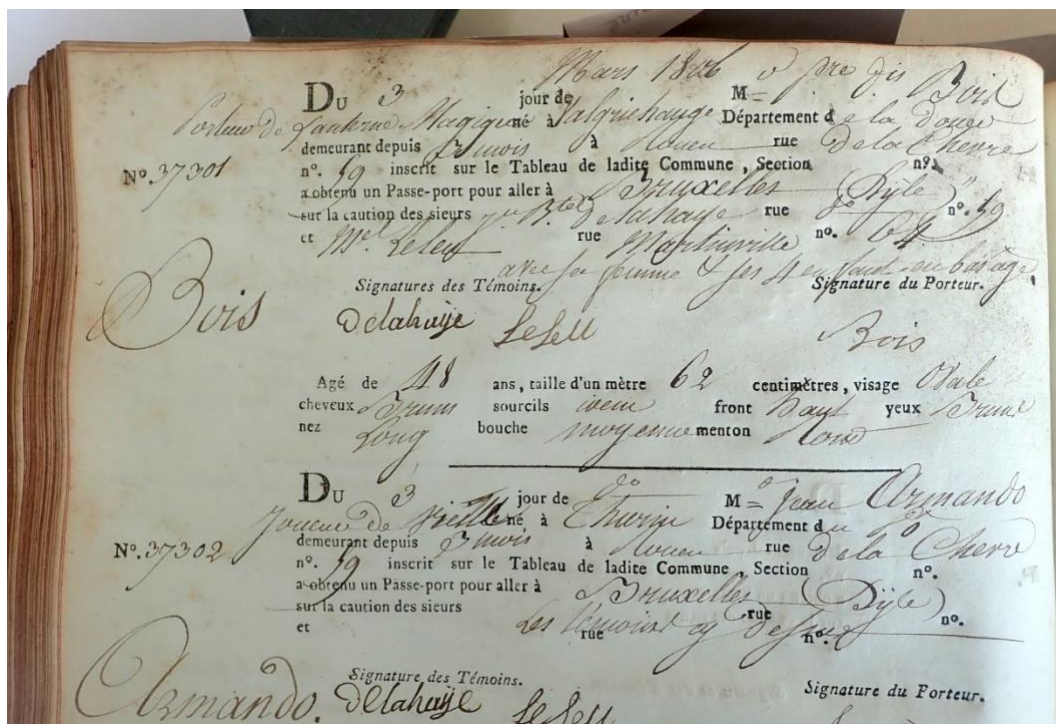 Du 3 jour de Mars 1806 M= Bois
Porteur de Lanterne Magique né à Valgrichange Département de la Doire
demeurant depuis 3 mois à Rouen rue de la Chevre
N°. 37301 n°. 59 inscrit sur le Tableau de ladite Commune, Section n°.
a obtenu un Passe-port pour aller à Bruxelles (Dÿle)
sur la caution des sieurs Delahaye rue do n°. 59
et Mel Leleu rue Martinville no. 64
avec sa femme & ses 4 enfants en bas age
Signatures des Témoins. Signature du Porteur.
Bois Delahaije Bois
Agé de 48 ans, taille d'un mètre 62 centimètres, visage Ovale
cheveux Bruns sourcils idem front haut yeux Bruns
nez Long bouche moyenne menton Rond
Du 3 jour de do M= Jean Armando
Joueur de Vielle né à Thurin Département du Po
demeurant depuis 3 mois à Rouen rue de la Chevre
N°. 37302 n°. 59 inscrit sur le Tableau de ladite Commune, Section n°.
a obtenu un Passe-port pour aller à Bruxelles (Dÿle)
sur la caution des sieurs Les témoins cy Dessus rue n°.
et rue n°.
Signature des Témoins. Signature du Porteur.
Armando. Delahaije